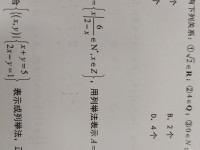 有下列关系：①√2∈R；②4∈Q；③0∈N
B．2个
D．4个
={x|6/(2-x)∈N*，x∈Z}，用列举法表示A=
{(x,y)|{x+y=5
2x-y=1}}表示成列举法，